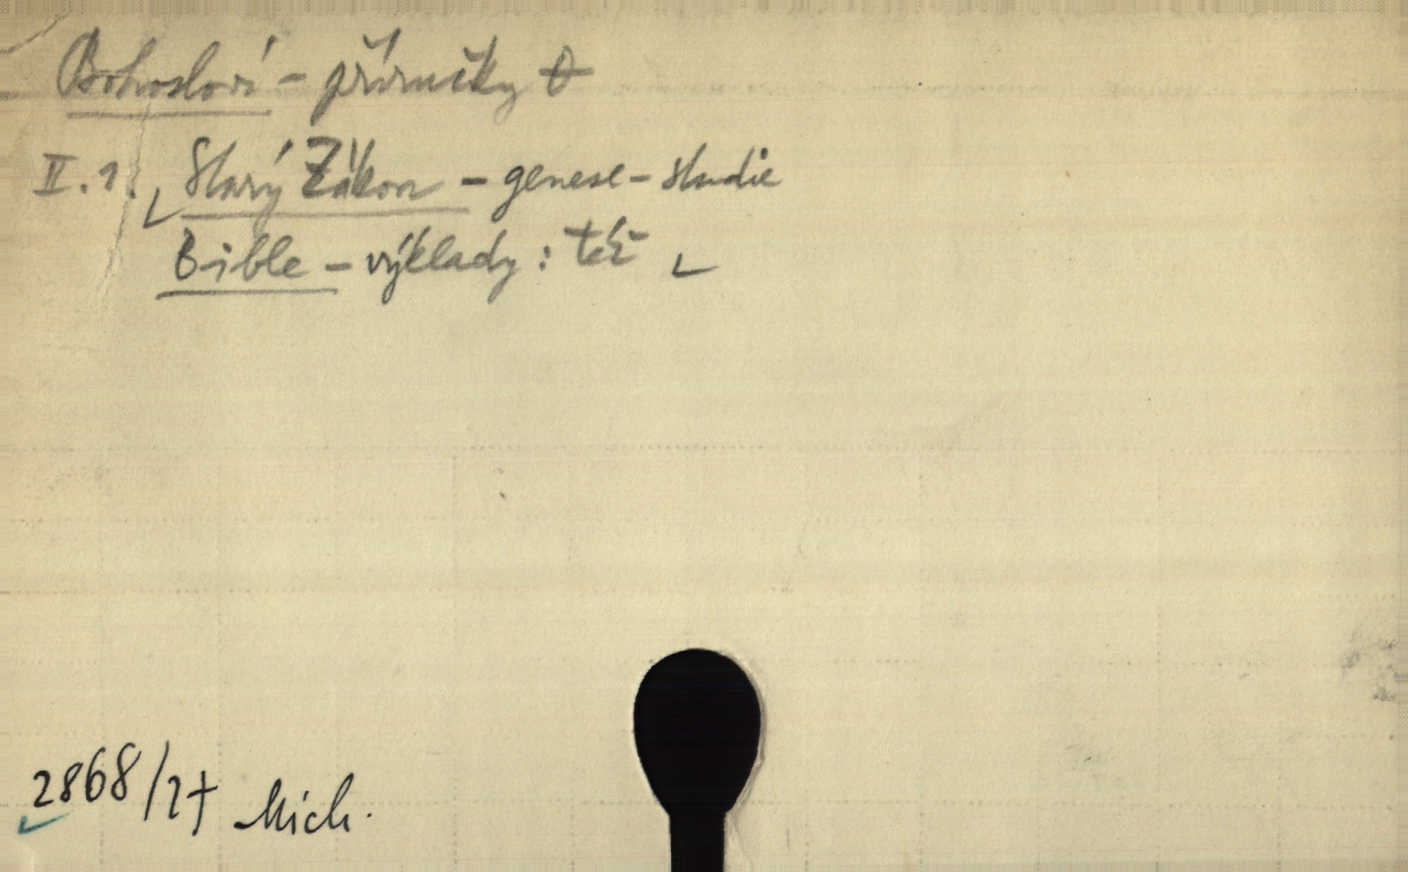 Bohosloví - příručky
II.1. Starý Zákon - genese - studie
Bible - výklady : též
2868/27 Mich.